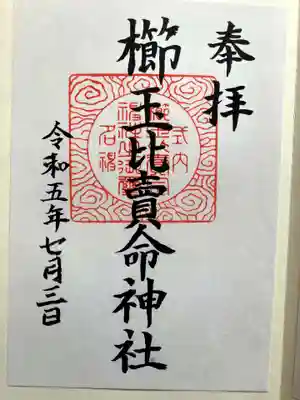 奉拝
櫛玉比賣命神社
令和五年七月三日
式内